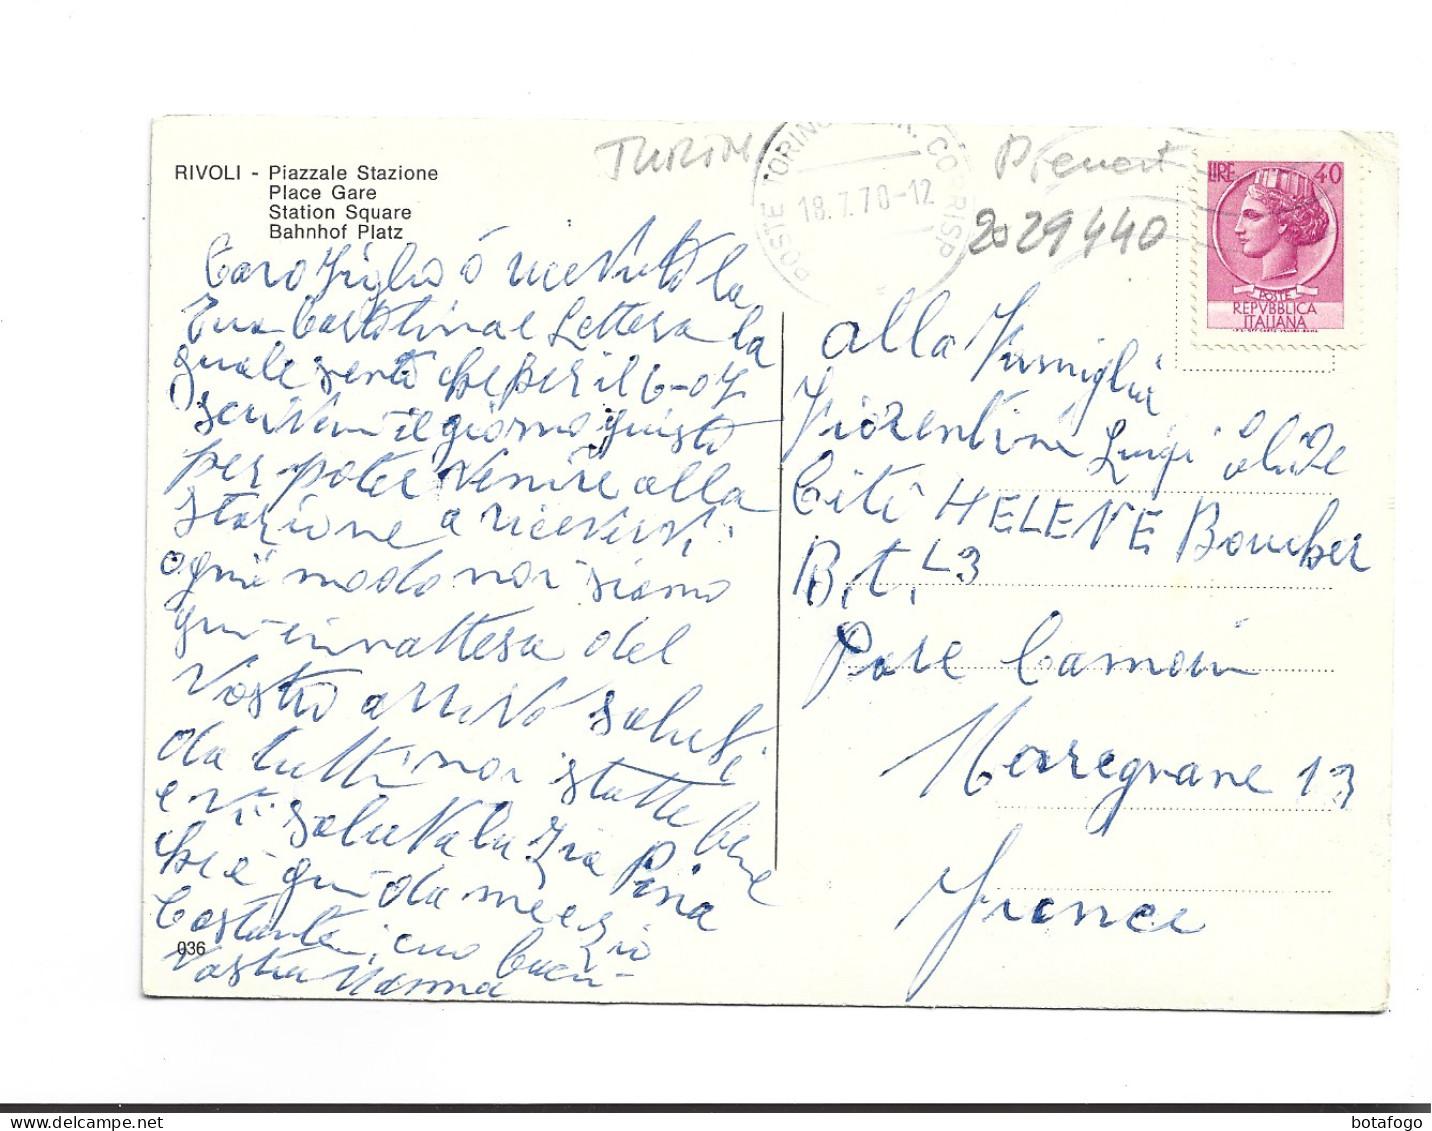 RIVOLI - Piazzale Stazione
Place Gare
Station Square
Bahnhof Platz
TURIN
POSTE TORINO CORRISP
18.7.70-12
2029440
LIRE 40
POSTE
REPVBBLICA
ITALIANA
Caro figlio ó ricevuto la
tua Cartolina e Lettera la
quale sento che per il 6-07
scrivimi il giorno giusto
per poter venire alla
stazione a ricevervi
ogni modo noi siamo
qui in attesa del
Vostro arrivo saluti
da tutti noi statte bene
e vi saluta la Zia Pina
che e qui da me e zio
Costante, un baci-
Vostra Mamma
036
alla Famiglia
Fiorentini Luigi
Cité HELENE Boucher
B.t. L3
Parc Camoin
Maregnane 13
france
botafogo